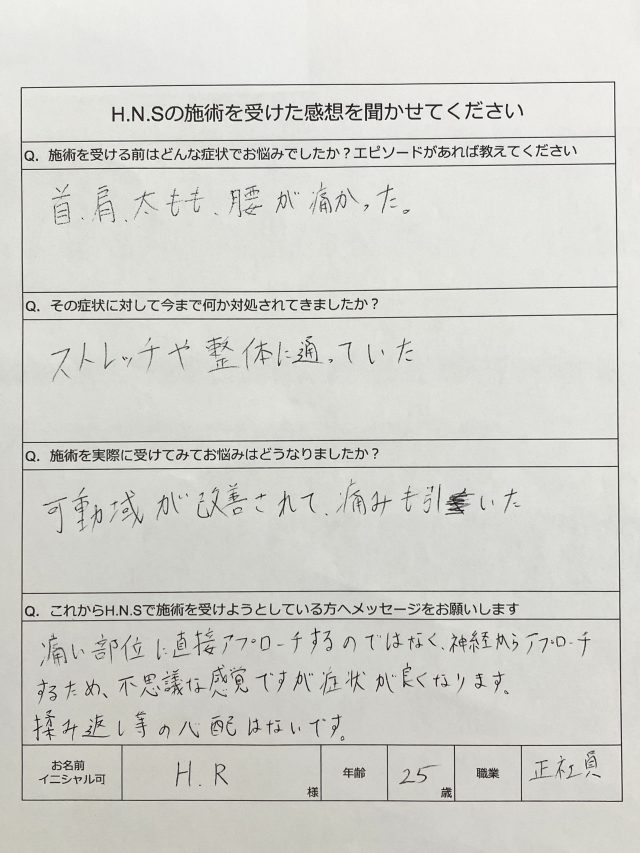 H.N.Sの施術を受けた感想を聞かせてください
Q．施術を受ける前はどんな症状でお悩みでしたか？エピソードがあれば教えてください
首、肩、太もも、腰が痛かった。
Q．その症状に対して今まで何か対処されてきましたか？
ストレッチや整体に通っていた
Q．施術を実際に受けてみてお悩みはどうなりましたか？
可動域が改善されて、痛みも引いた
Q．これからH.N.Sで施術を受けようとしている方へメッセージをお願いします
痛い部位に直接アプローチするのではなく、神経からアプローチ
するため、不思議な感覚ですが症状が良くなります。
揉み返し等の心配はないです。
お名前
イニシャル可
H.R
様
年齢
25
歳
職業
正社員